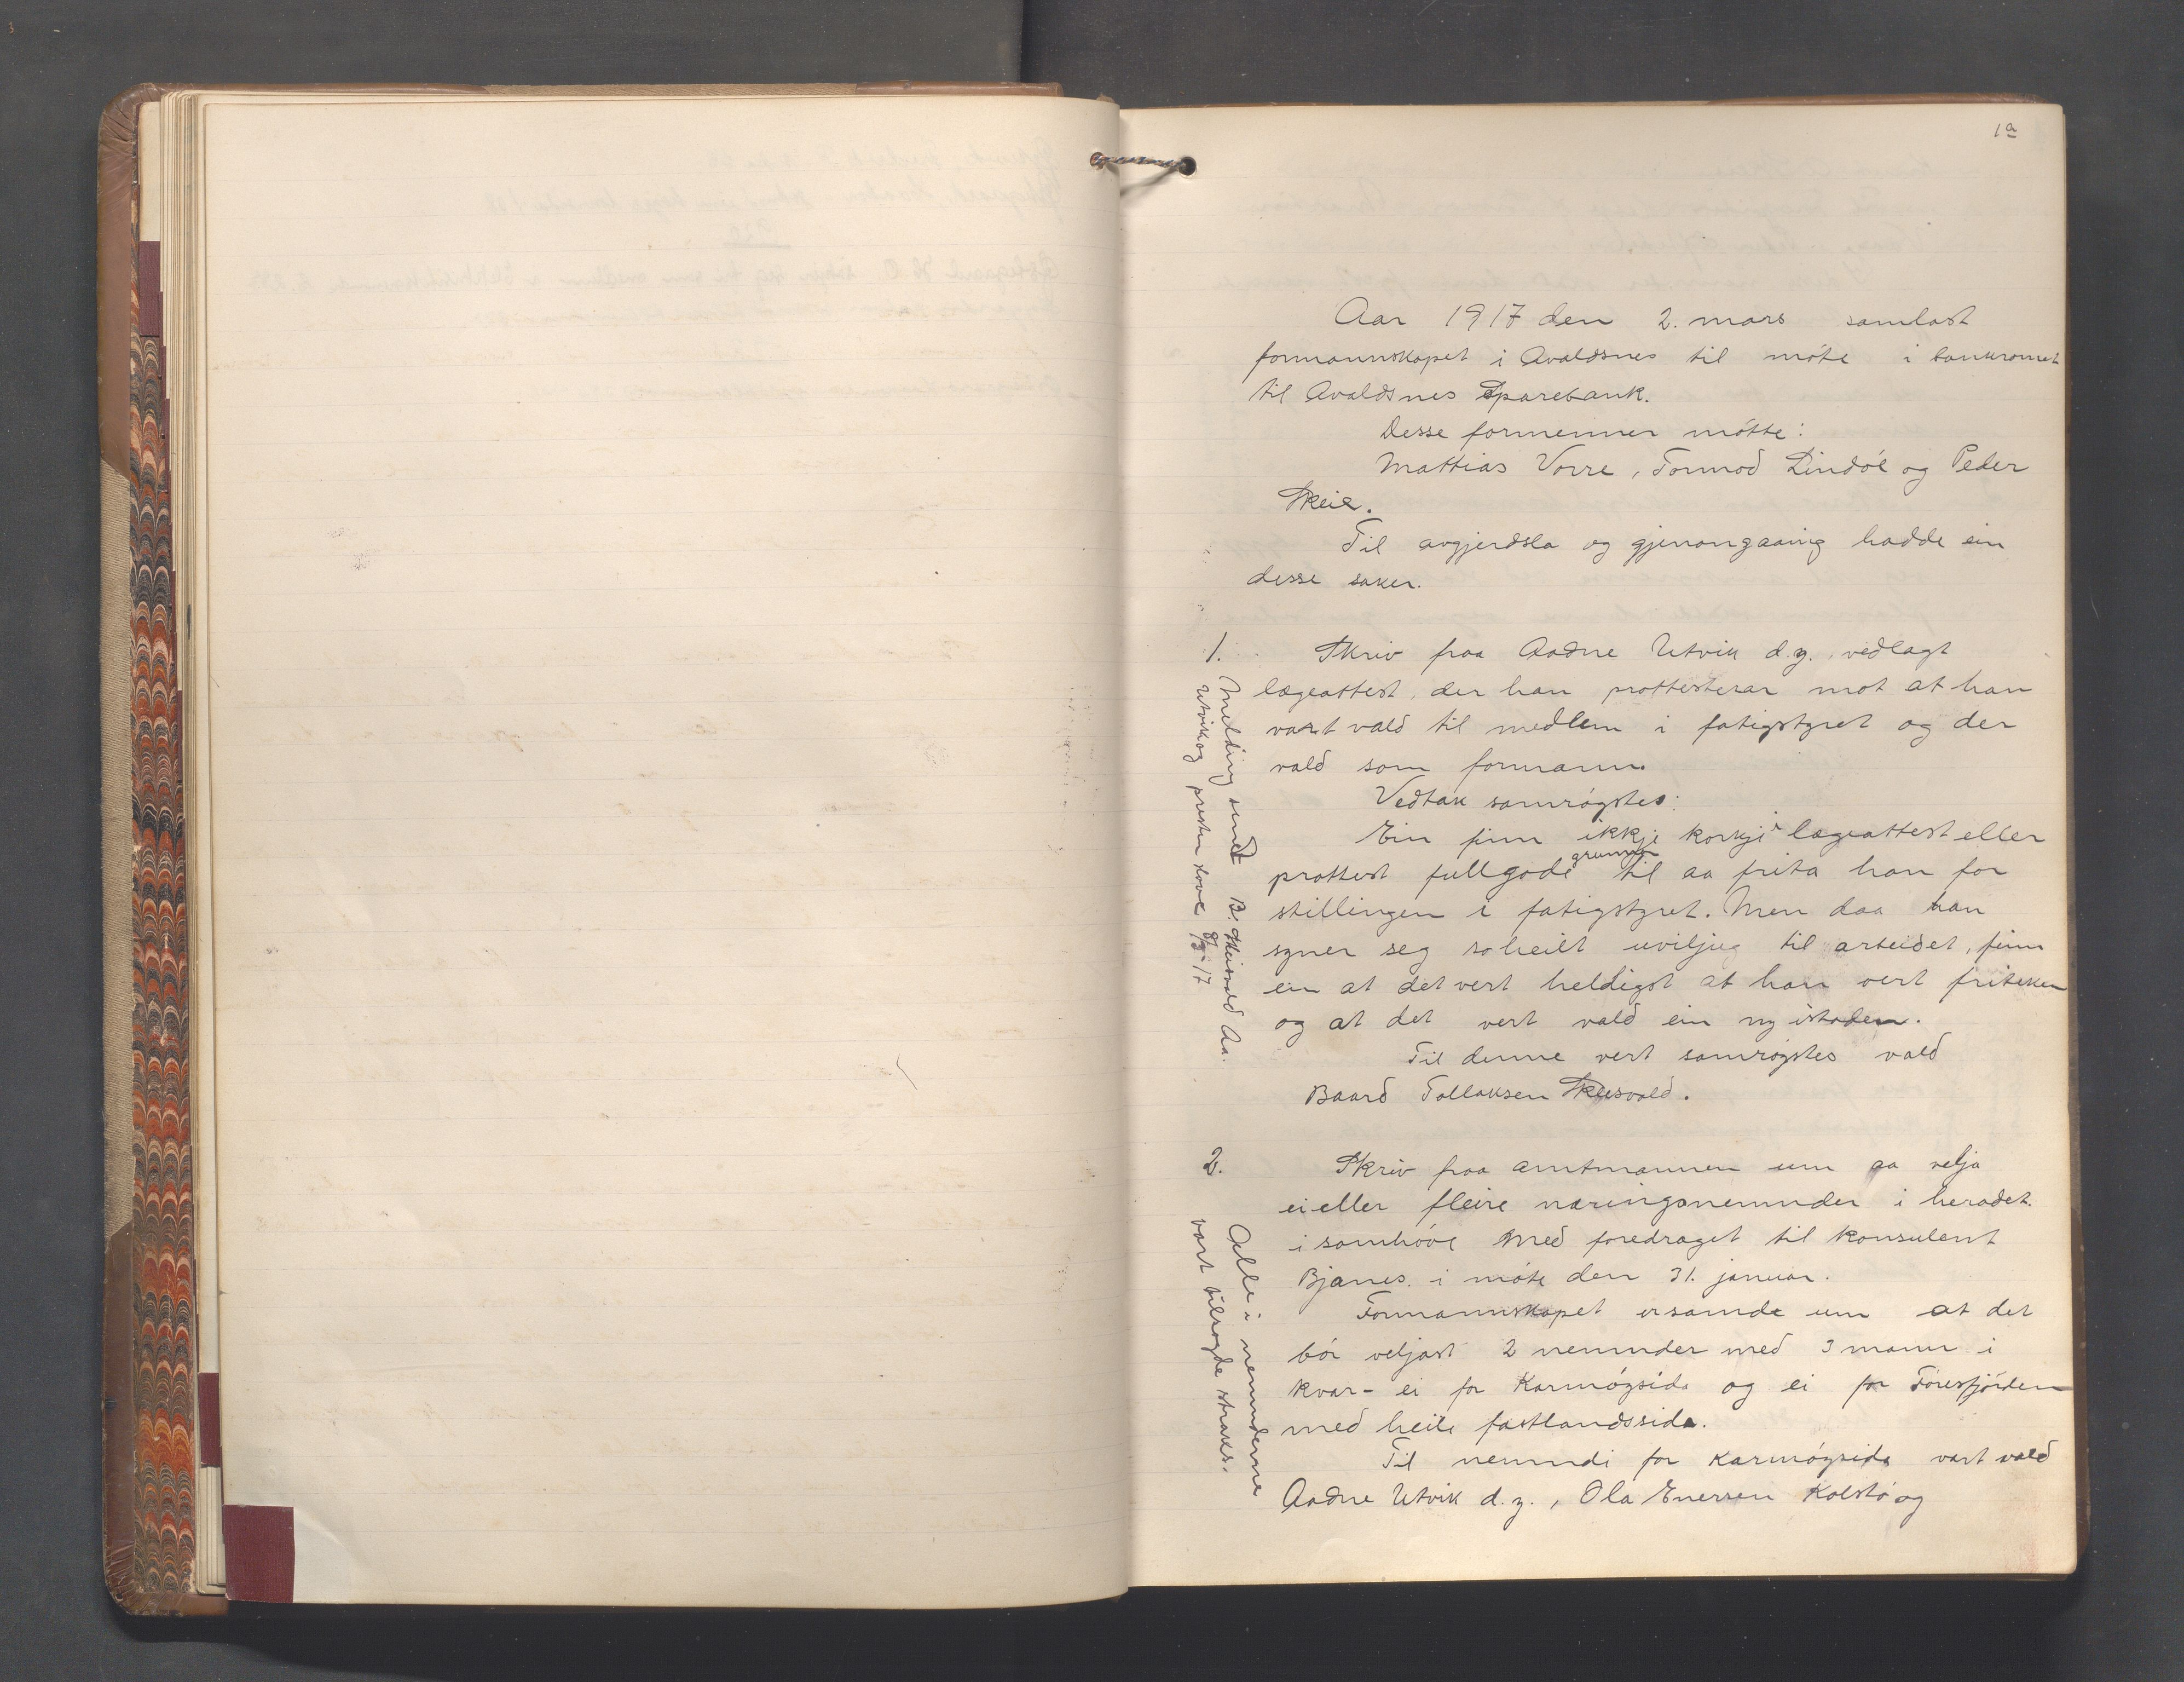 1a
Aar 1917 den 2. mars samlast
formannskapet i Avaldsnes til móte i bankromet
til Avaldsnes Sparebank.
Desse formenner mótte:
Mattias Vorre, Tormod Lindóe og Peder
Skeie.
Til avgjerdsla og gjenomgaaing hadde ein
desse saker.
1. Skriv fraa Aadne Utvik d.y. vedlagt
lægeattest, der han prottesterar mot at han
vart vald til medlem i fatigstyret og der
vald som formann.
Vedtak samróystes:
Ein finn ikkje korkje i lægeattest eller
prottest fullgode grunnar til aa frita han for
stillingen i fatigstyret. Men daa han
syner seg so heilt uviljug til arbeidet, finn
ein at det vert heldigst at han vert friteken
og at det vert vald ein ny istaden.
Til denne vert samróystes vald
Baard Tollaksen Skeisvold.
Melding sendt B. Skeisvold Aa.
Utvik og presten Hove 8/3-17
2. Skriv fraa amtmannen um aa velja
ei eller fleire næringsnemnder i heradet
i samhóve med foredraget til konsulent
Bjanes i móte den 31. januar.
Formannskapet er samde um at det
bór veljast 2 nemnder med 3 mann i
kvar - ei for Karmóysida og ei for Fóresfjórden
med heile fastlandssida.
Til nemndi for Karmóysida vart vald
Aadne Utvik d.y., Ola Enersen Kolstó og
Alle i nemnderne
vart tilsagde straks.